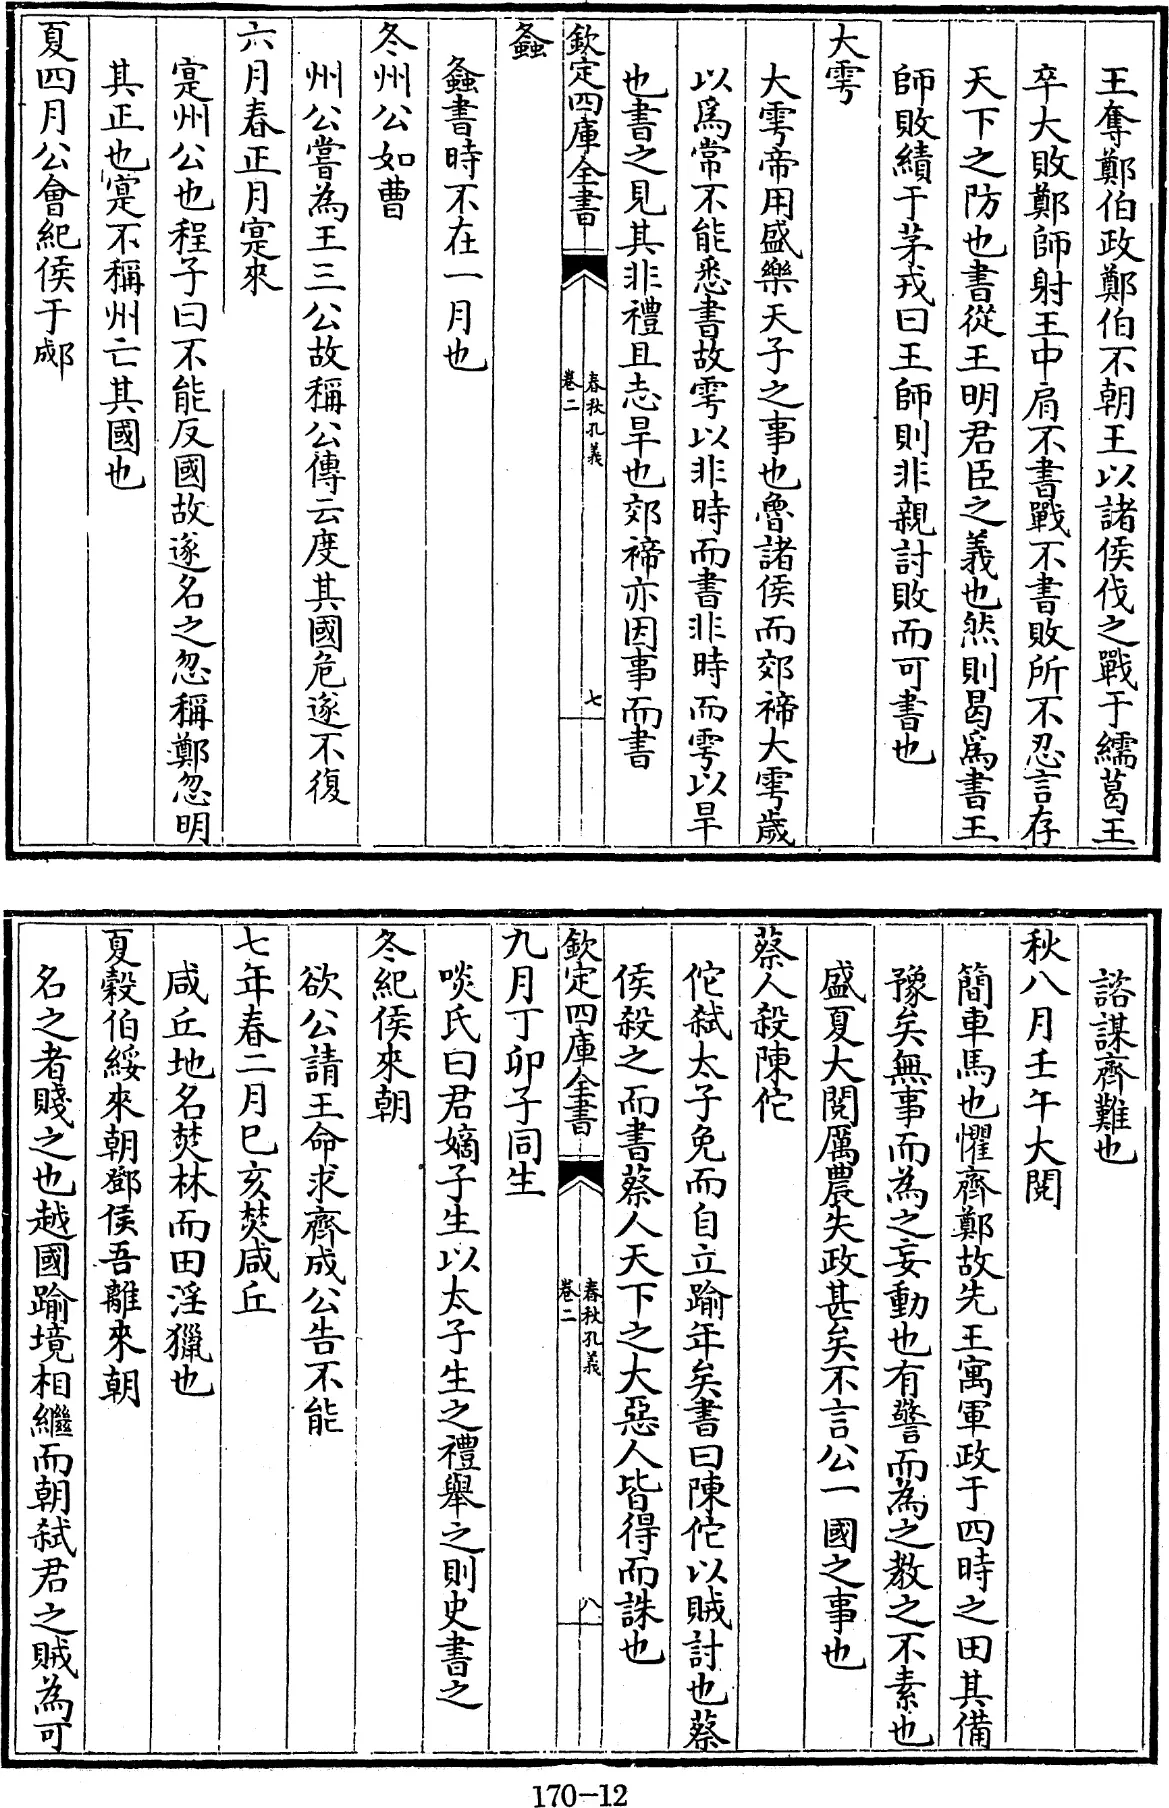 王奪鄭伯政鄭伯不朝王以諸侯伐之戰于繻葛王
卒大敗鄭師射王中肩不書戰不書敗所不忍言存
天下之防也書從王明君臣之義也然則曷爲書王
師敗績于茅戎曰王師則非親討敗而可書也
大雩
大雩帝用盛樂天子之事也魯諸侯而郊禘大雩歳
以爲常不能悉書故雩以非時而書非時而雩以旱
也書之見其非禮且志旱也郊禘亦因事而書
欽定四庫全書
春秋孔義
卷二
七
螽
螽書時不在一月也
冬州公如曹
州公嘗為王三公故稱公傳云度其國危遂不復
六月春正月寔來
寔州公也程子曰不能反國故遂名之忽稱鄭忽明
其正也寔不稱州亡其國也
夏四月公會紀侯于郕
諮謀齊難也
秋八月壬午大閱
簡車馬也懼齊鄭故先王寓軍政于四時之田其備
豫矣無事而為之妄動也有警而為之教之不素也
盛夏大閱厲農失政甚矣不言公一國之事也
蔡人殺陳佗
佗弑太子免而自立踰年矣書曰陳佗以賊討也蔡
侯殺之而書蔡人天下之大惡人皆得而誅也
欽定四庫全書
春秋孔義
卷二
八
九月丁卯子同生
啖氏曰君嫡子生以太子生之禮舉之則史書之
冬紀侯來朝
欲公請王命求齊成公告不能
七年春二月巳亥焚咸丘
咸丘地名焚林而田淫獵也
夏穀伯綏來朝鄧侯吾離來朝
名之者賤之也越國踰境相繼而朝弑君之賊為可
170-12